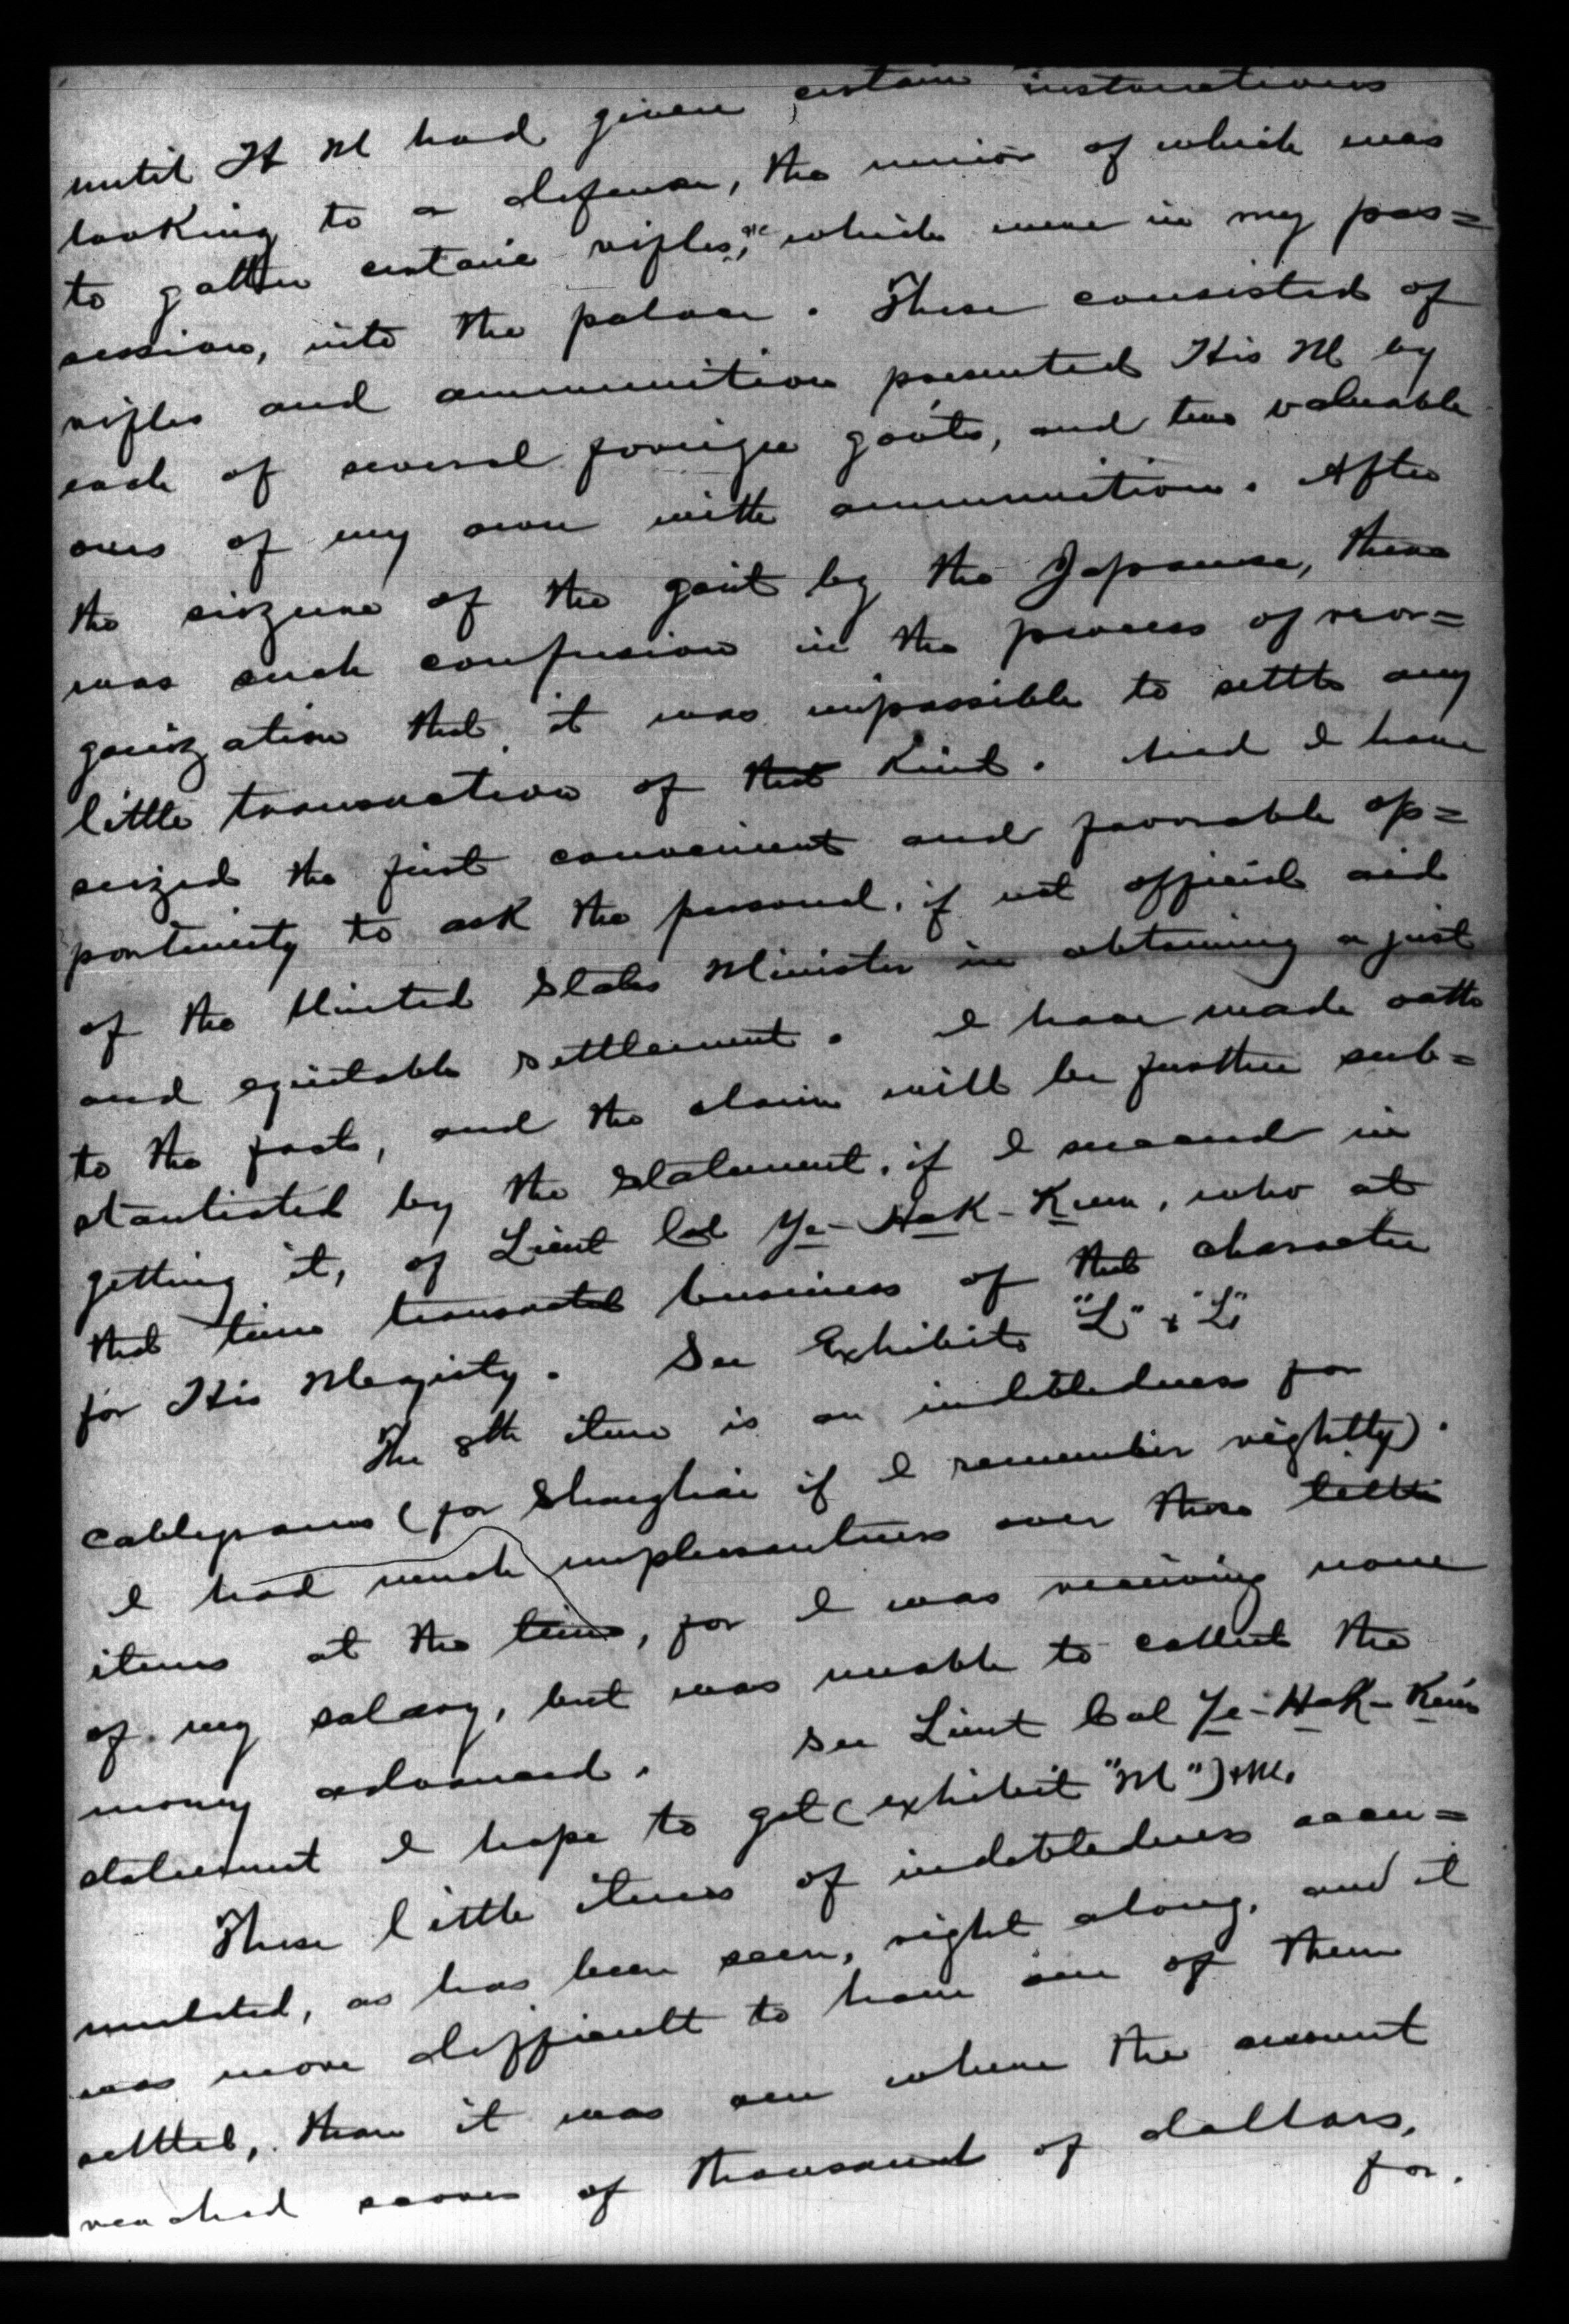 until H M had given certain instructions
looking to a defense, the minor of which was
to gather certain rifles, etc which were in my pos=
session, into the palace. These consisted of
rifles and ammunition presented His M by
each of several foreign gov'ts, and two valuable
ones of my own with ammunition. After
the seizure of the gov't by the Japanese, there
was such confusion in the process of reor=
ganization that it was impossible to settle any
little transaction of that kind. And I have
seized the first convenient and favorable op=
portunity to ask the personal, if not official aid
of the United States Minister in obtaining a just
and equitable settlement. I have made oath
to the fact, and the claim will be further sub=
stantiated by the statement, if I succeed in
getting it, of Lieut Col Ye-Hak-Kun, who at
that time transacted business of that character
for His Majesty. See Exhibits "L" & "L"
The 8th item is an indebtedness for
cablegrams (for Shanghai if I remember rightly).
I had much unpleasantness over these little
items at the time, for I was receiving none
of my salary, but was unable to collect the
money advanced. See Lieut Col Ye-Hak-Kun's
statement I hope to get (exhibit "M") & M.
These little items of indebtedness accu=
mulated, as has been seen, right along, and it
was more difficult to have one of them
settled, than it was one where the amount
reached scores of thousand of dollars,
for.